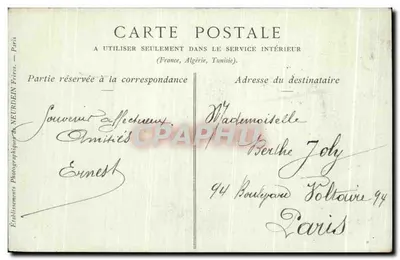 CARTE POSTALE
A UTILISER SEULEMENT DANS LE SERVICE INTÉRIEUR
(France, Algérie, Tunisie).
Partie réservée à la correspondance
Adresse du destinataire
Souvenir affectueux
Amitiés
Ernest
Mademoiselle
Berthe Joly
94 Boulevard Voltaire 94
Paris
Etablissements Photographiques de NEURDEIN Frères. — Paris
CPAPHIL